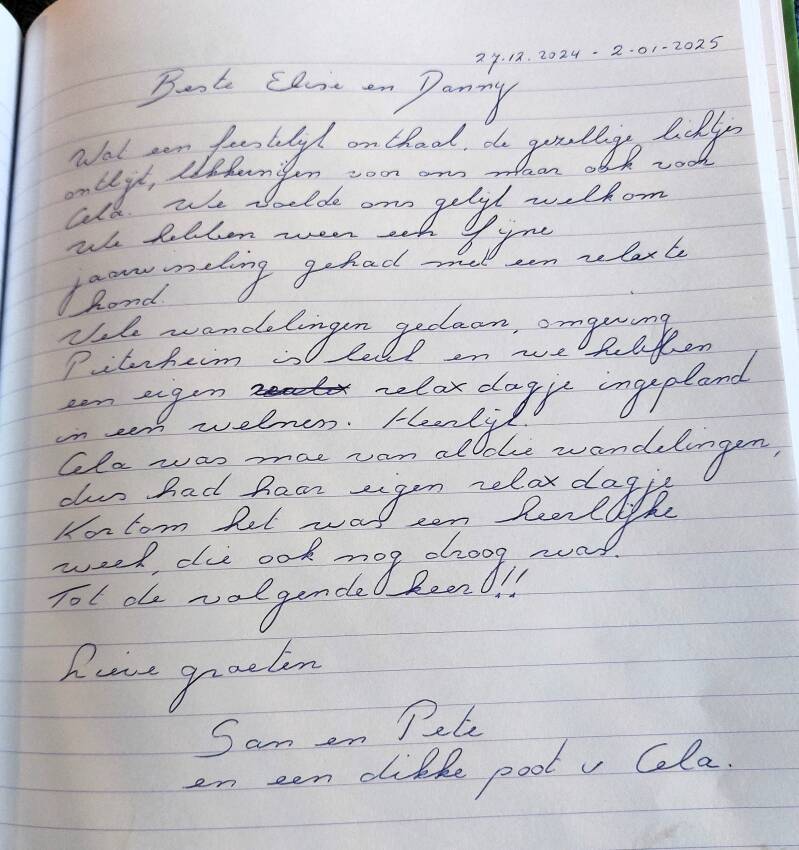 27.12.2024 - 2-01-2025
Beste Elise en Danny
Wat een feestelijk onthaal, de gezellige lichtjes
ontbijt, lekkernijen voor ons maar ook voor
Cela. We voelde ons gelijk welkom
We hebben weer een fijne
jaarwisseling gehad met een relaxte
hond.
Vele wandelingen gedaan, omgeving
Pieterheim is leuk en we hebben
een eigen relax dagje ingepland
in een welness. Heerlijk.
Cela was moe van al die wandelingen,
dus had haar eigen relax dagje
Kortom het was een heerlijke
week, die ook nog droog was.
Tot de volgende keer!!
Lieve groeten
San en Pete
en een dikke poot v Cela.